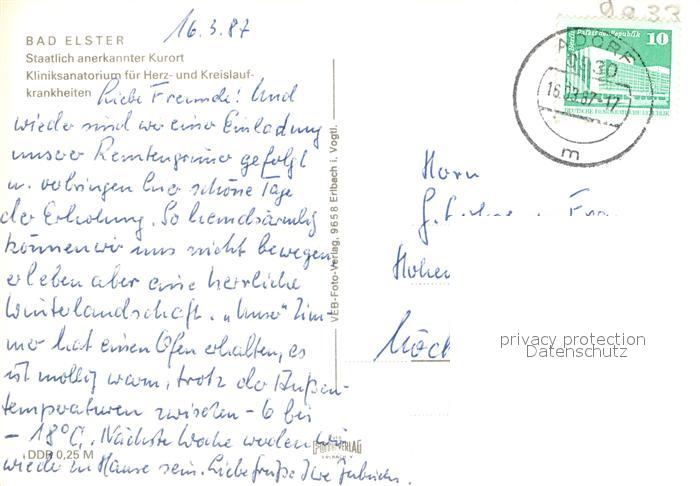 16.3.87
BAD ELSTER
Staatlich anerkannter Kurort
Kliniksanatorium für Herz- und Kreislauf-
krankheiten
Liebe Freunde! Und
wieder sind wir einer Einladung
unserer gefolgt
u. verbringen hier schöne Tage
der Erholung. So hemdsärmlig
können wir uns nicht bewegen
erleben aber eine herrliche
Winterlandschaft. „Unser" Zim-
mer hat einen Ofen erhalten, es
ist mollig warm, trotz der Außen-
temperaturen zwischen -6 bis
- 18°C. Nächste Woche werden wir
wieder zu Hause sein. Liebe Grüße Ihre
DDR 0,25 M
VEB-Foto-Verlag, 9658 Erlbach i. Vogtl.
FOTO-VERLAG
ERLBACH
10
Berlin Palast der Republik
DEUTSCHE DEMOKRATISCHE REPUBLIK
ADORF
9930
16.03.87-17
m
Herrn
privacy protection
Datenschutz